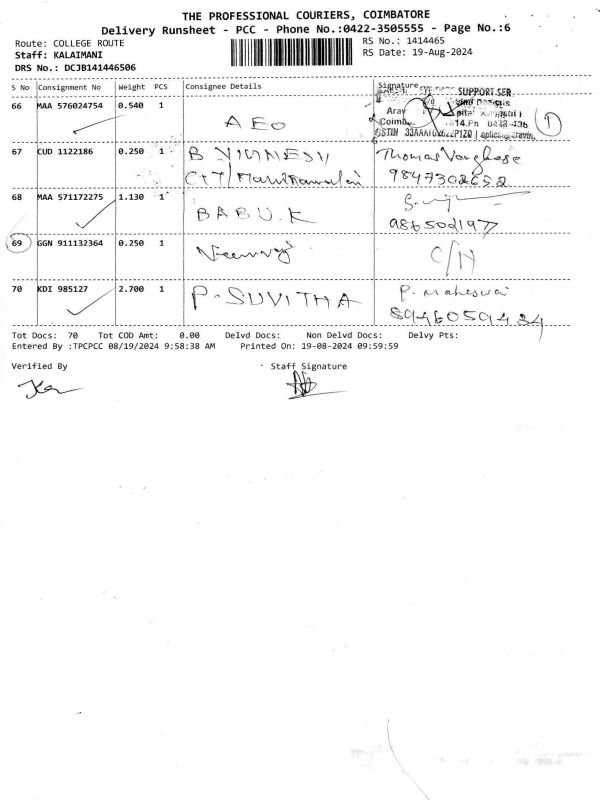 THE PROFESSIONAL COURIERS, COIMBATORE
Delivery Runsheet - PCC - Phone No.:0422-3505555 - Page No.:6
Route: COLLEGE ROUTE
RS No.: 1414465
Staff: KALAIMANI
RS Date: 19-Aug-2024
DRS No.: DCJB141446506
S No Consignment No Weight PCS Consignee Details Signature
SUPPORT SER
66 MAA 576024754 0.540 1 AEO
Arav
Coimb
14.Ph 0422-436
GSTIN 1
67 CUD 1122186 0.250 1 B VIGNESH Thomas Varghese
CIT/ 9847302652
68 MAA 571172275 1.130 1 BABU.K
9865021977
69 GGN 911132364 0.250 1 C/H
70 KDI 985127 2.700 1 P-SUVITHA P. maheswari
8946059434
Tot Docs: 70 Tot COD Amt: 0.00 Delvd Docs: Non Delvd Docs: Delvy Pts:
Entered By :TPCPCC 08/19/2024 9:58:38 AM Printed On: 19-08-2024 09:59:59
Verified By Staff Signature